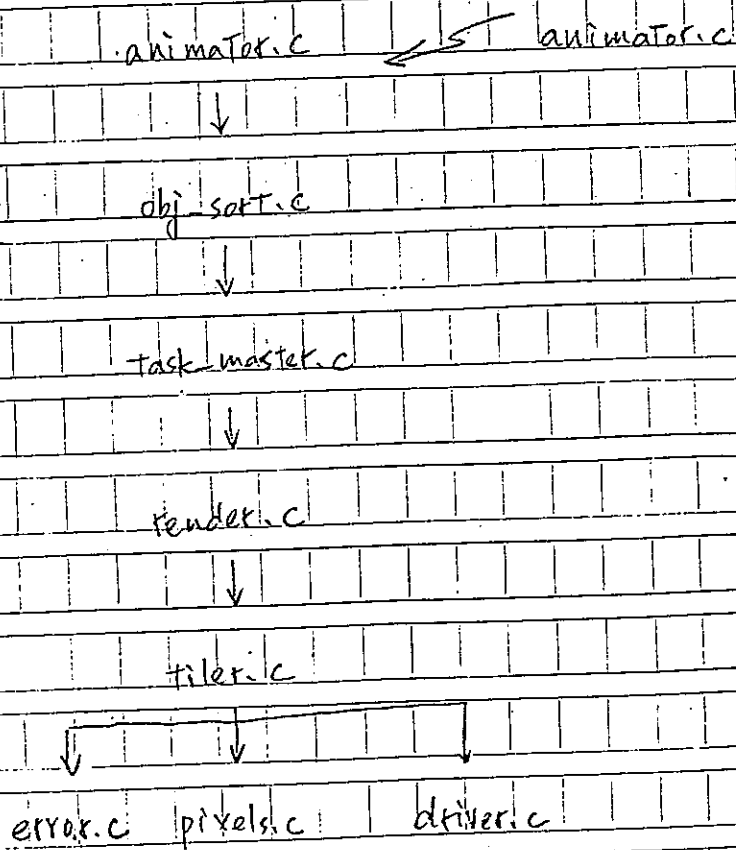 animator.c animator.c
obj_sort.c
task_master.c
render.c
tiler.c
error.c pixels.c driver.c